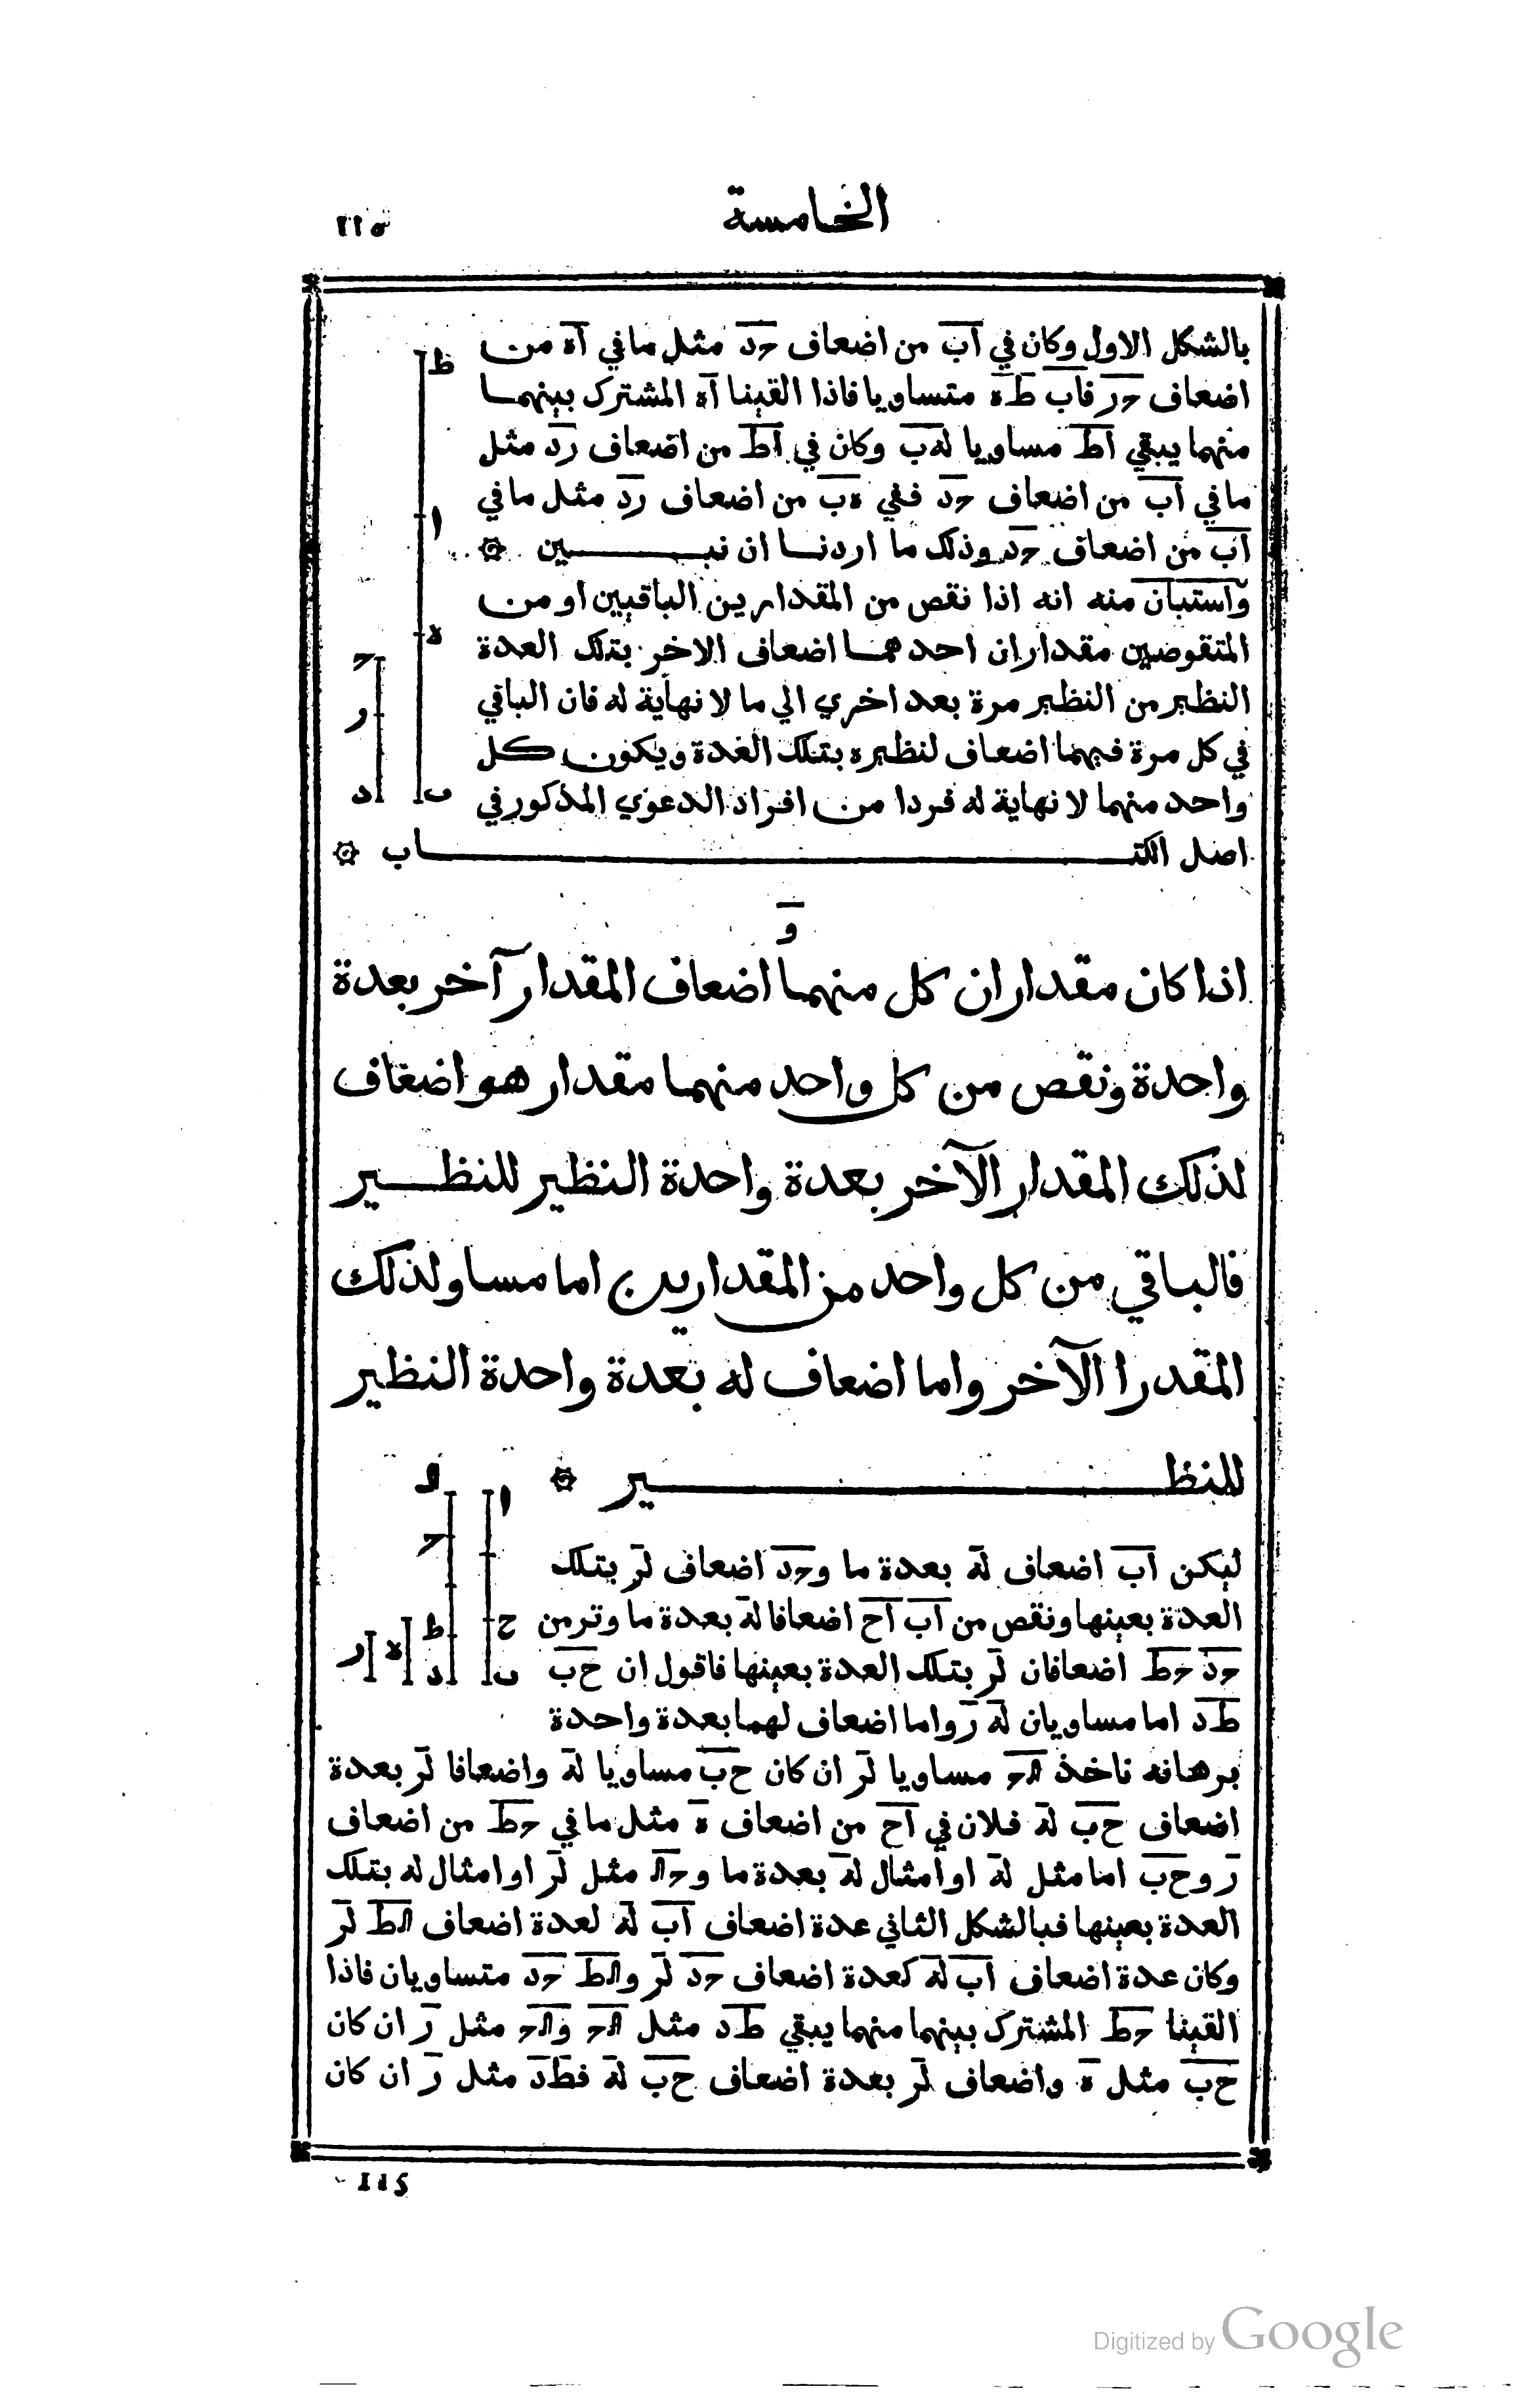 الخامسة
١١٥
بالشكل الاول وكان في اب من اضعاف حد مثل ما في اه من
اضعاف حر فاب طه متساويا فاذا القينا اه المشترك بينهما
منهما يبقي اط مساويا له ب وكان في اط من اضعاف رد مثل
ما في اب من اضعاف حد ففي ه ب من اضعاف رد مثل ما في
اب من اضعاف حد وذلك ما اردنا ان نبين
واستبان منه انه اذا نقص من المقدارين الباقيين او من
المنقوصين مقداران احدهما اضعاف الاخر بتلك العدة
النظير من النظير مرة بعد اخري الي ما لا نهاية له فان الباقي
في كل مرة فيهما اضعاف لنظيره بتلك العدة ويكون كل
واحد منهما لا نهاية له فردا من افراد الدعوي المذكور في
اصل الكتاب
ظ
ا
ه
ب
ح
ر
د
و
اذا كان مقداران كل منهما اضعاف المقدار آخر بعدة
واحدة ونقص من كل واحد منهما مقدار هو اضعاف
لذلك المقدار الآخر بعدة واحدة النظير للنظير
فالباقي من كل واحد من المقدارين اما مساو لذلك
المقدرا الآخر واما اضعاف له بعدة واحدة النظير
للنظير
ا
ح
ب
ك
ح
ط
د
ه
ر
ليكن اب اضعاف له بعدة ما وحد اضعاف لر بتلك
العدة بعينها ونقص من اب اح اضعافا له بعدة ما وتر من
حد حط اضعافان لر بتلك العدة بعينها فاقول ان حب
طد اما مساويان له ر واما اضعاف لهما بعدة واحدة
برهانه ناخذ كح مساويا لر ان كان حب مساويا له واضعافا لر بعدة
اضعاف حب له فلان في اح من اضعاف ه مثل ما في حط من اضعاف
ر وحب اما مثل له او امثال له بعدة ما وحك مثل لر او امثال له بتلك
العدة بعينها فبالشكل الثاني عدة اضعاف اب له لعدة اضعاف كط لر
وكان عدة اضعاف اب له كعدة اضعاف حد لر وكط حد متساويان فاذا
القينا حط المشترك بينهما منهما يبقي طد مثل كح وكح مثل ر ان كان
حب مثل ه واضعاف لر بعدة اضعاف حب له فطد مثل ر ان كان
115
Digitized by Google